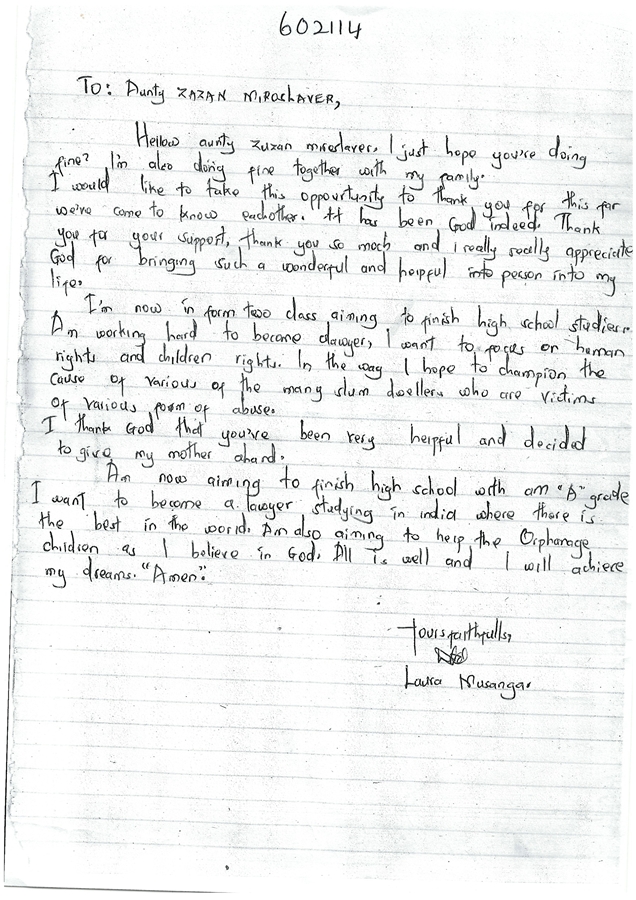 602114
To: Aunty ZAZAN MIROSLAVER,
Hellow aunty zuzan miroslaver, I just hope you're doing
fine? I'm also doing fine together with my family.
I would like to take this oppourtunity to thank you for this far
we've come to know eachother. It has been God indeed. Thank
you for your support, thank you so much and i really really appreciate
God for bringing such a wonderful and helpful into person into my
life.
I'm now in form two class aiming to finish high school studies.
Am working hard to become alawyer, I want to focus on human
rights and children rights. In the way I hope to champion the
cause of various of the many slum dwellers who are victims
of various form of abuse.
I thank God that you've been very helpful and decided
to give my mother ahand.
Am now aiming to finish high school with am "A" grade
I want to become a lawyer studying in india where there is
the best in the world. Am also aiming to help the Orphanage
children as I believe in God. All is well and I will achieve
my dreams. "Amen".
Yours faithfully,
Laura Musanga.